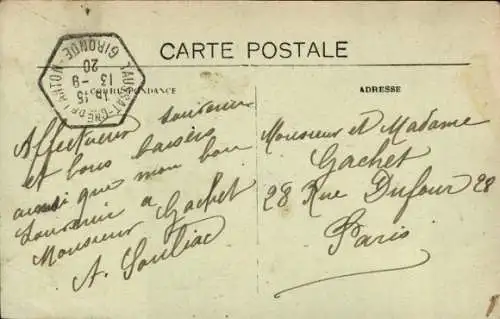 CARTE POSTALE
CORRESPONDANCE
ADRESSE
TAUSSAT-
GIRONDE
18 15
13 - 9
20
Affectueux souvenir
et bons baisers
ainsi que mon bon
souvenir a
Monsieur Gachet
A. Souliac
Monsieur et Madame
Gachet
28 Rue Dufour 28
Paris